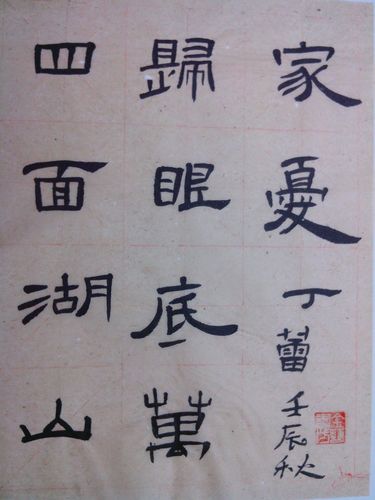 四面湖山
歸眼底萬
家憂丁蕾壬辰秋